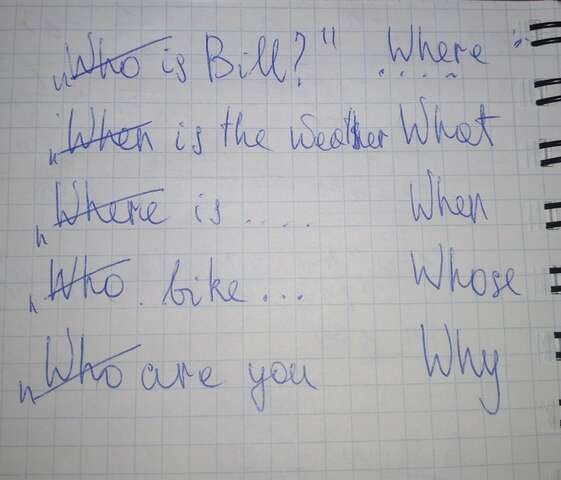 „Who is Bill?" Where
„When is the weather What
„Where is .... When
„Who bike... Whose
„Who are you Why